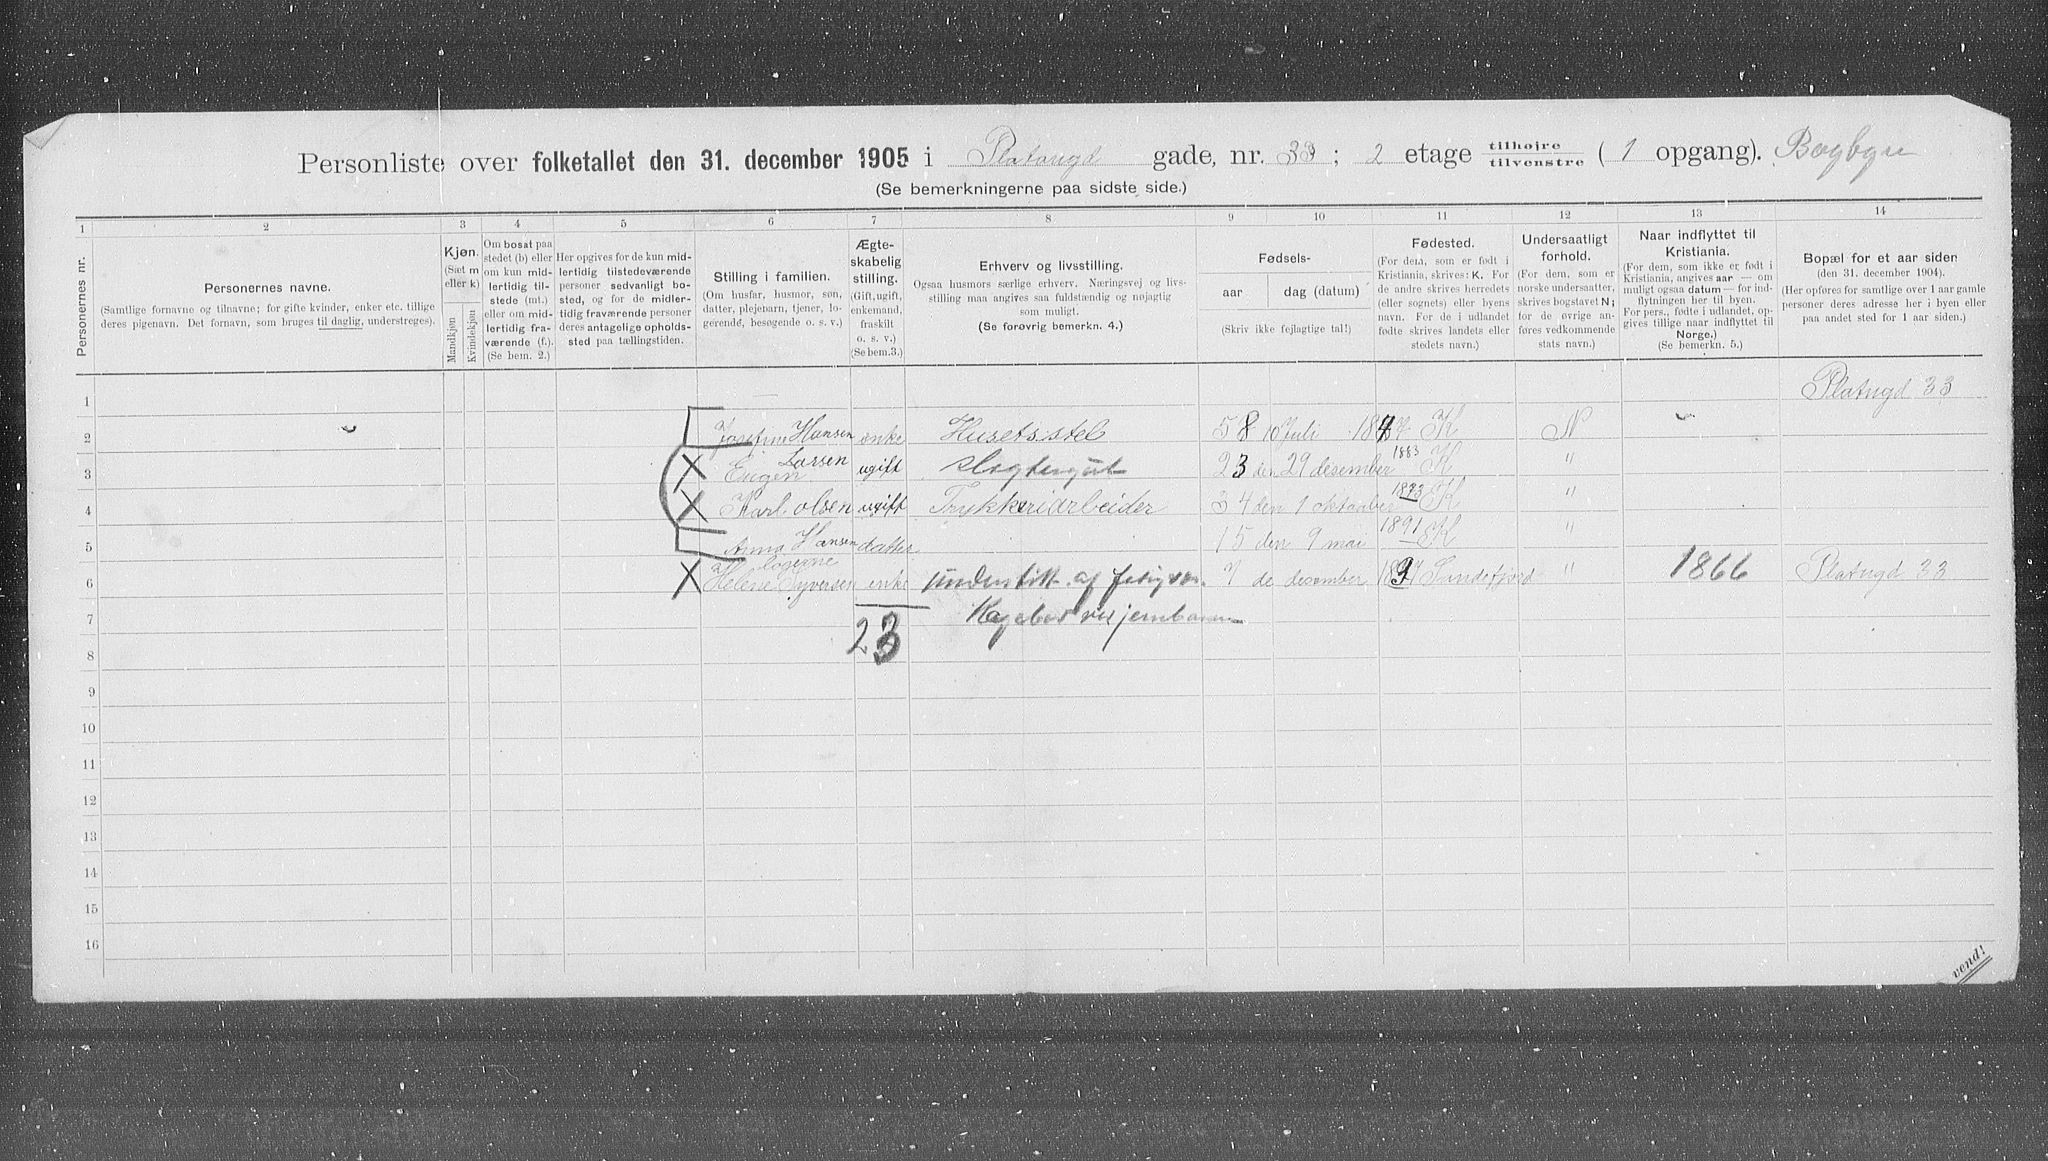 Personliste over folketallet den 31. december 1905 i Platougd gade, nr. 33 ; 2 etage tilhøjre tilvenstre ( 1 opgang). Bagbyn
(Se bemerkningerne paa sidste side.)
1 2 3 4 5 6 7 8 9 10 11 12 13 14
Personernes nr.
Personernes navne.
(Samtlige fornavne og tilnavne; for gifte kvinder, enker etc. tillige
deres pigenavn. Det fornavn, som bruges til daglig, understreges).
Kjøn.
(Sæt m
eller k)
Mandkjøn
Kvindekjøn
Om bosat paa
stedet (b) eller
om kun mid-
lertidig til-
stede (mt.)
eller om mid-
lertidig fra-
værende (f.).
(Se bem. 2.)
Her opgives for de kun mid-
lertidig tilstedeværende
personer sedvanligt bo-
sted, og for de midler-
tidig fraværende personer
deres antagelige opholds-
sted paa tællingstiden.
Stilling i familien.
(Om husfar, husmor, søn,
datter, plejebarn, tjener, lo-
gerende, besøgende o. s. v.)
Ægte-
skabelig
stilling.
(Gift, ugift,
enkemand,
fraskilt
o. s. v.)
(Se bem.3.)
Erhverv og livsstilling.
Ogsaa husmors særlige erhverv. Næringsvej og livs-
stilling maa angives saa fuldstændig og nøjagtig
som muligt.
(Se forøvrig bemerkn. 4.)
Fødsels-
aar dag (datum)
(Skriv ikke fejlagtige tal!)
Fødested.
(For dem, som er født i
Kristiania, skrives: K. For
de andre skrives herredets
(eller sognets) eller byens
navn. For de i udlandet
fødte skrives landets eller
stedets navn.)
Undersaatligt
forhold.
(For dem, som er
norske undersaatter,
skrives bogstavet N;
for de øvrige an-
føres vedkommende
stats navn.)
Naar indflyttet til
Kristiania.
(For dem, som ikke er født i
Kristiania, angives aar — om
muligt ogsaa datum — for ind-
flytningen her til byen.
For pers., fødte i udlandet, op-
gives tillige naar indflyttet til
Norge.)
(Se bemerkn. 5.)
Bopæl for et aar siden
(den 31. december 1904).
(Her opføres for samtlige over 1 aar gamle
personer deres adresse her i byen eller
paa andet sted for 1 aar siden.)
1 Platugd 33
2 Josefine Hansen enke Husets stel 58 10 Juli K N
3 Eugen Larsen ugift 23 den 29 desember 1883 K "
4 Karl olsen ugift Trykkeriarbeider 34 den 1 oktaaber K "
5 Anna Hansen datter 15 den 9 mai 1891 K "
losgerne
6 Helene Syversen enke understøtt. af 7 de desember Sandefjord " 1866 Platugd 33
7 ved jernbanen
23
8
9
10
11
12
13
14
15
16
vend!